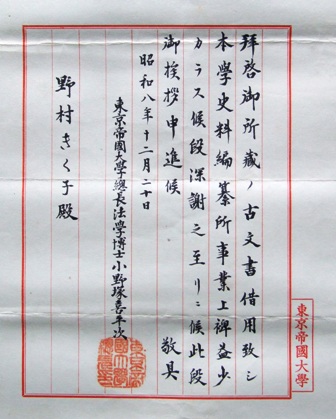 拜啓御所藏ノ古文書借用致シ
本學史料編纂所事業上裨益少
カラス候段深謝之至リニ候此段
御挨拶申進候　敬具
昭和八年十二月二十日
東京帝國大學總長法學博士小野塚喜平次
野村きく子殿
東京帝國大學